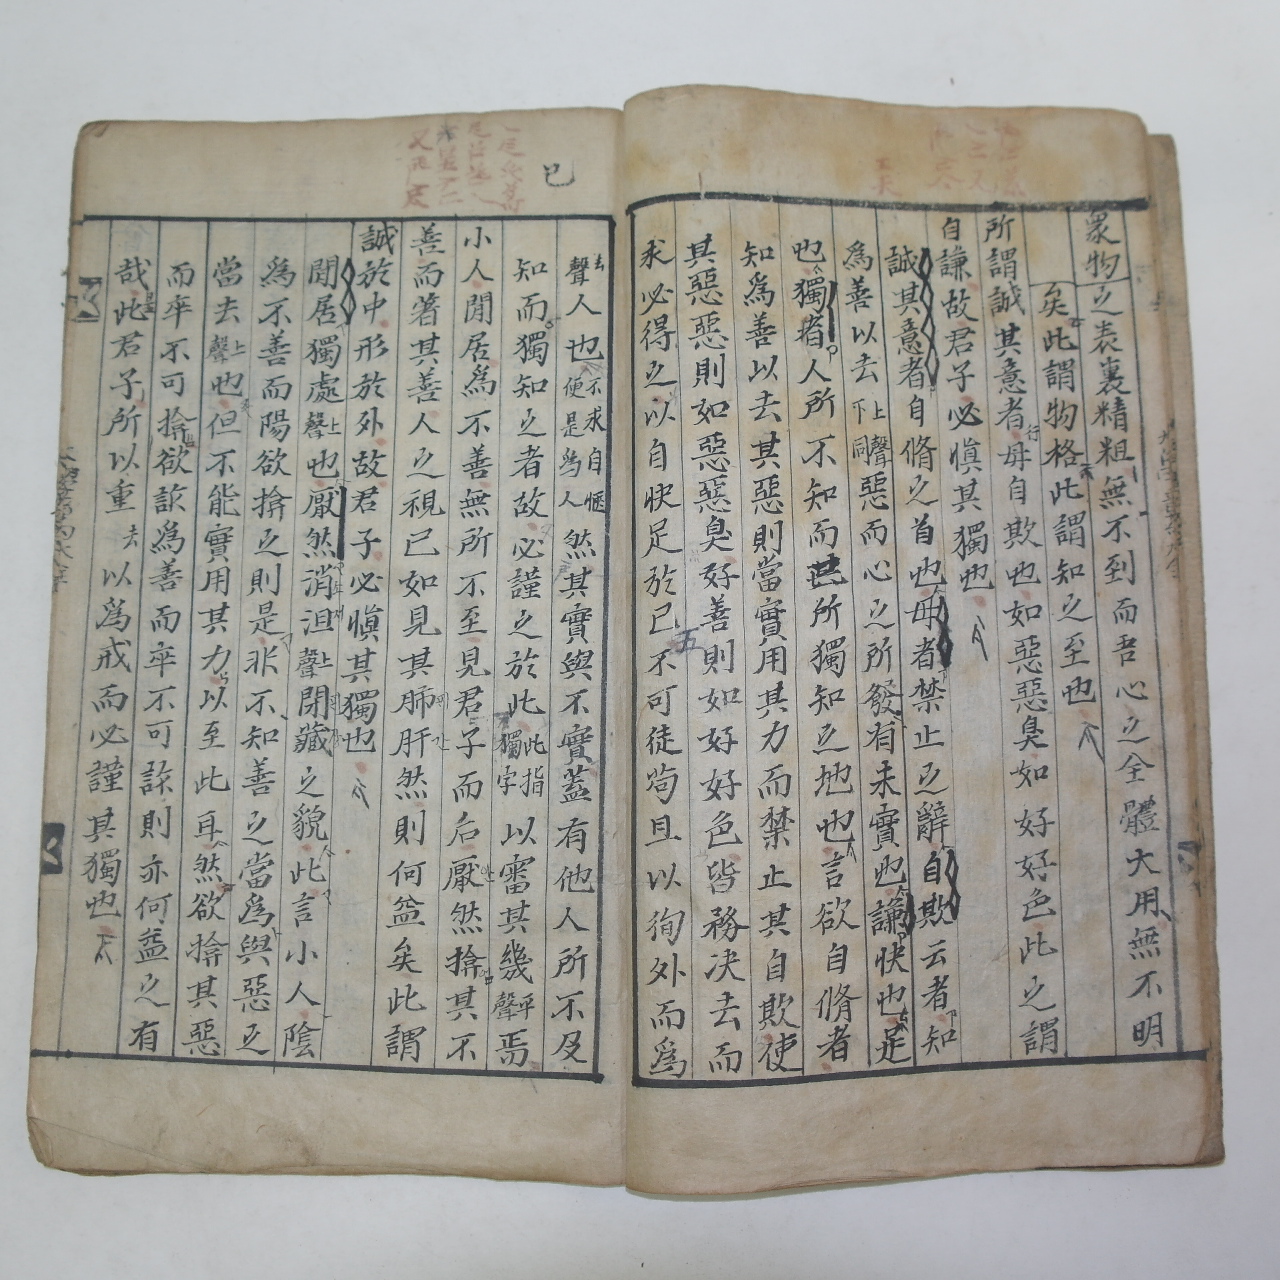 衆物之表裏精粗無不到而吾心之全體大用無不明
矣此謂物格此謂知之至也
所謂誠其意者毋自欺也如惡惡臭如好好色此之謂
自謙故君子必慎其獨也
誠其意者自脩之首也毋者禁止之辭自欺云者知
爲善以去上聲下同惡而心之所發有未實也謙快也足
也獨者人所不知而己所獨知之地也言欲自脩者
知爲善以去其惡則當實用其力而禁止其自欺使
其惡惡則如惡惡臭好善則如好好色皆務决去而
求必得之以自快足於已不可徒苟且以徇外而爲
巳
去聲人也不求自慊便是爲人然其實與不實蓋有他人所不及
知而獨知之者故必謹之於此此指獨字以審其幾平聲焉
小人閒居爲不善無所不至見君子而后厭然揜其不
善而著其善人之視己如見其肺肝然則何益矣此謂
誠於中形於外故君子必慎其獨也
閒居獨處上聲也厭然消沮上聲閉藏之貌此言小人陰
爲不善而陽欲揜之則是非不知善之當爲與惡之
當去上聲也但不能實用其力以至此耳然欲揜其惡
而卒不可揜欲詐爲善而卒不可詐則亦何益之有
哉此君子所以重去以爲戒而必謹其獨也